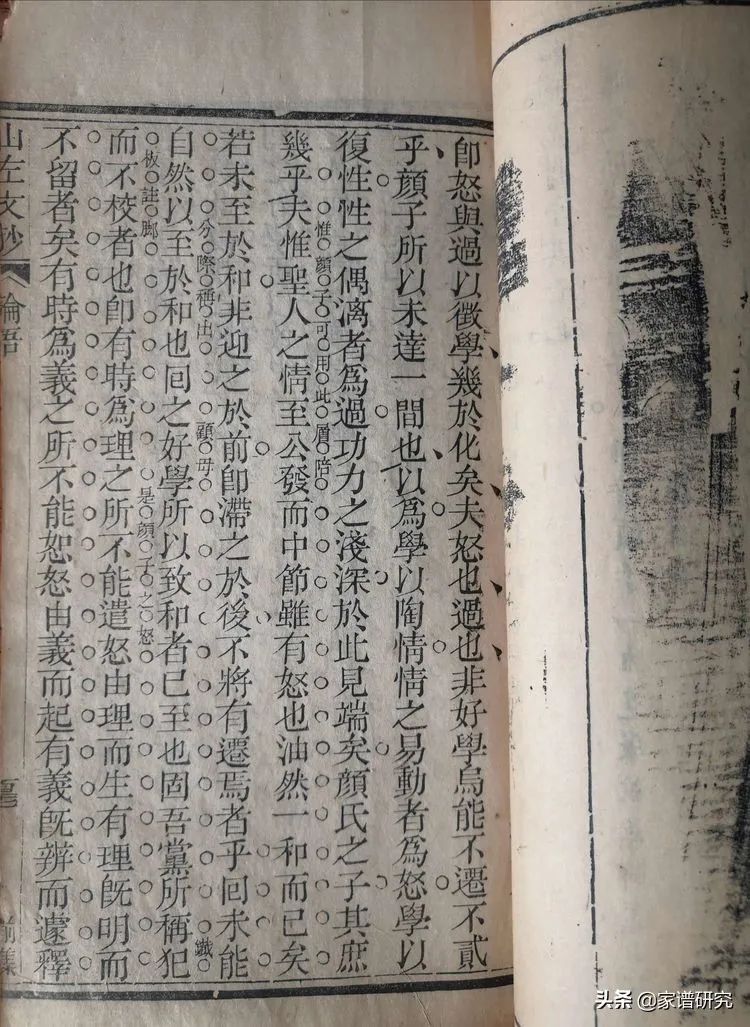 卽怒與過以徵學幾於化矣夫怒也過也非好學烏能不遷不貳
乎顏子所以未達一間也以爲學以陶情情之易動者爲怒學以
復性性之偶漓者爲過功力之淺深於此見端矣顏氏之子其庶
惟顏子可用此層陪
幾乎夫惟聖人之情至公發而中節雖有怒也油然一和而已矣
若未至於和非迎之於前卽滯之於後不將有遷焉者乎回未能
分際稱出 顧毋 鐵
自然以至於和也回之好學所以致和者已至也固吾黨所稱犯
板註腳 是顏子之怒
而不校者也卽有時爲理之所不能遣怒由理而生有理旣明而
不留者矣有時爲義之所不能恕怒由義而起有義旣辨而遽釋
山左文抄 論語
前集
头条 @家谱研究